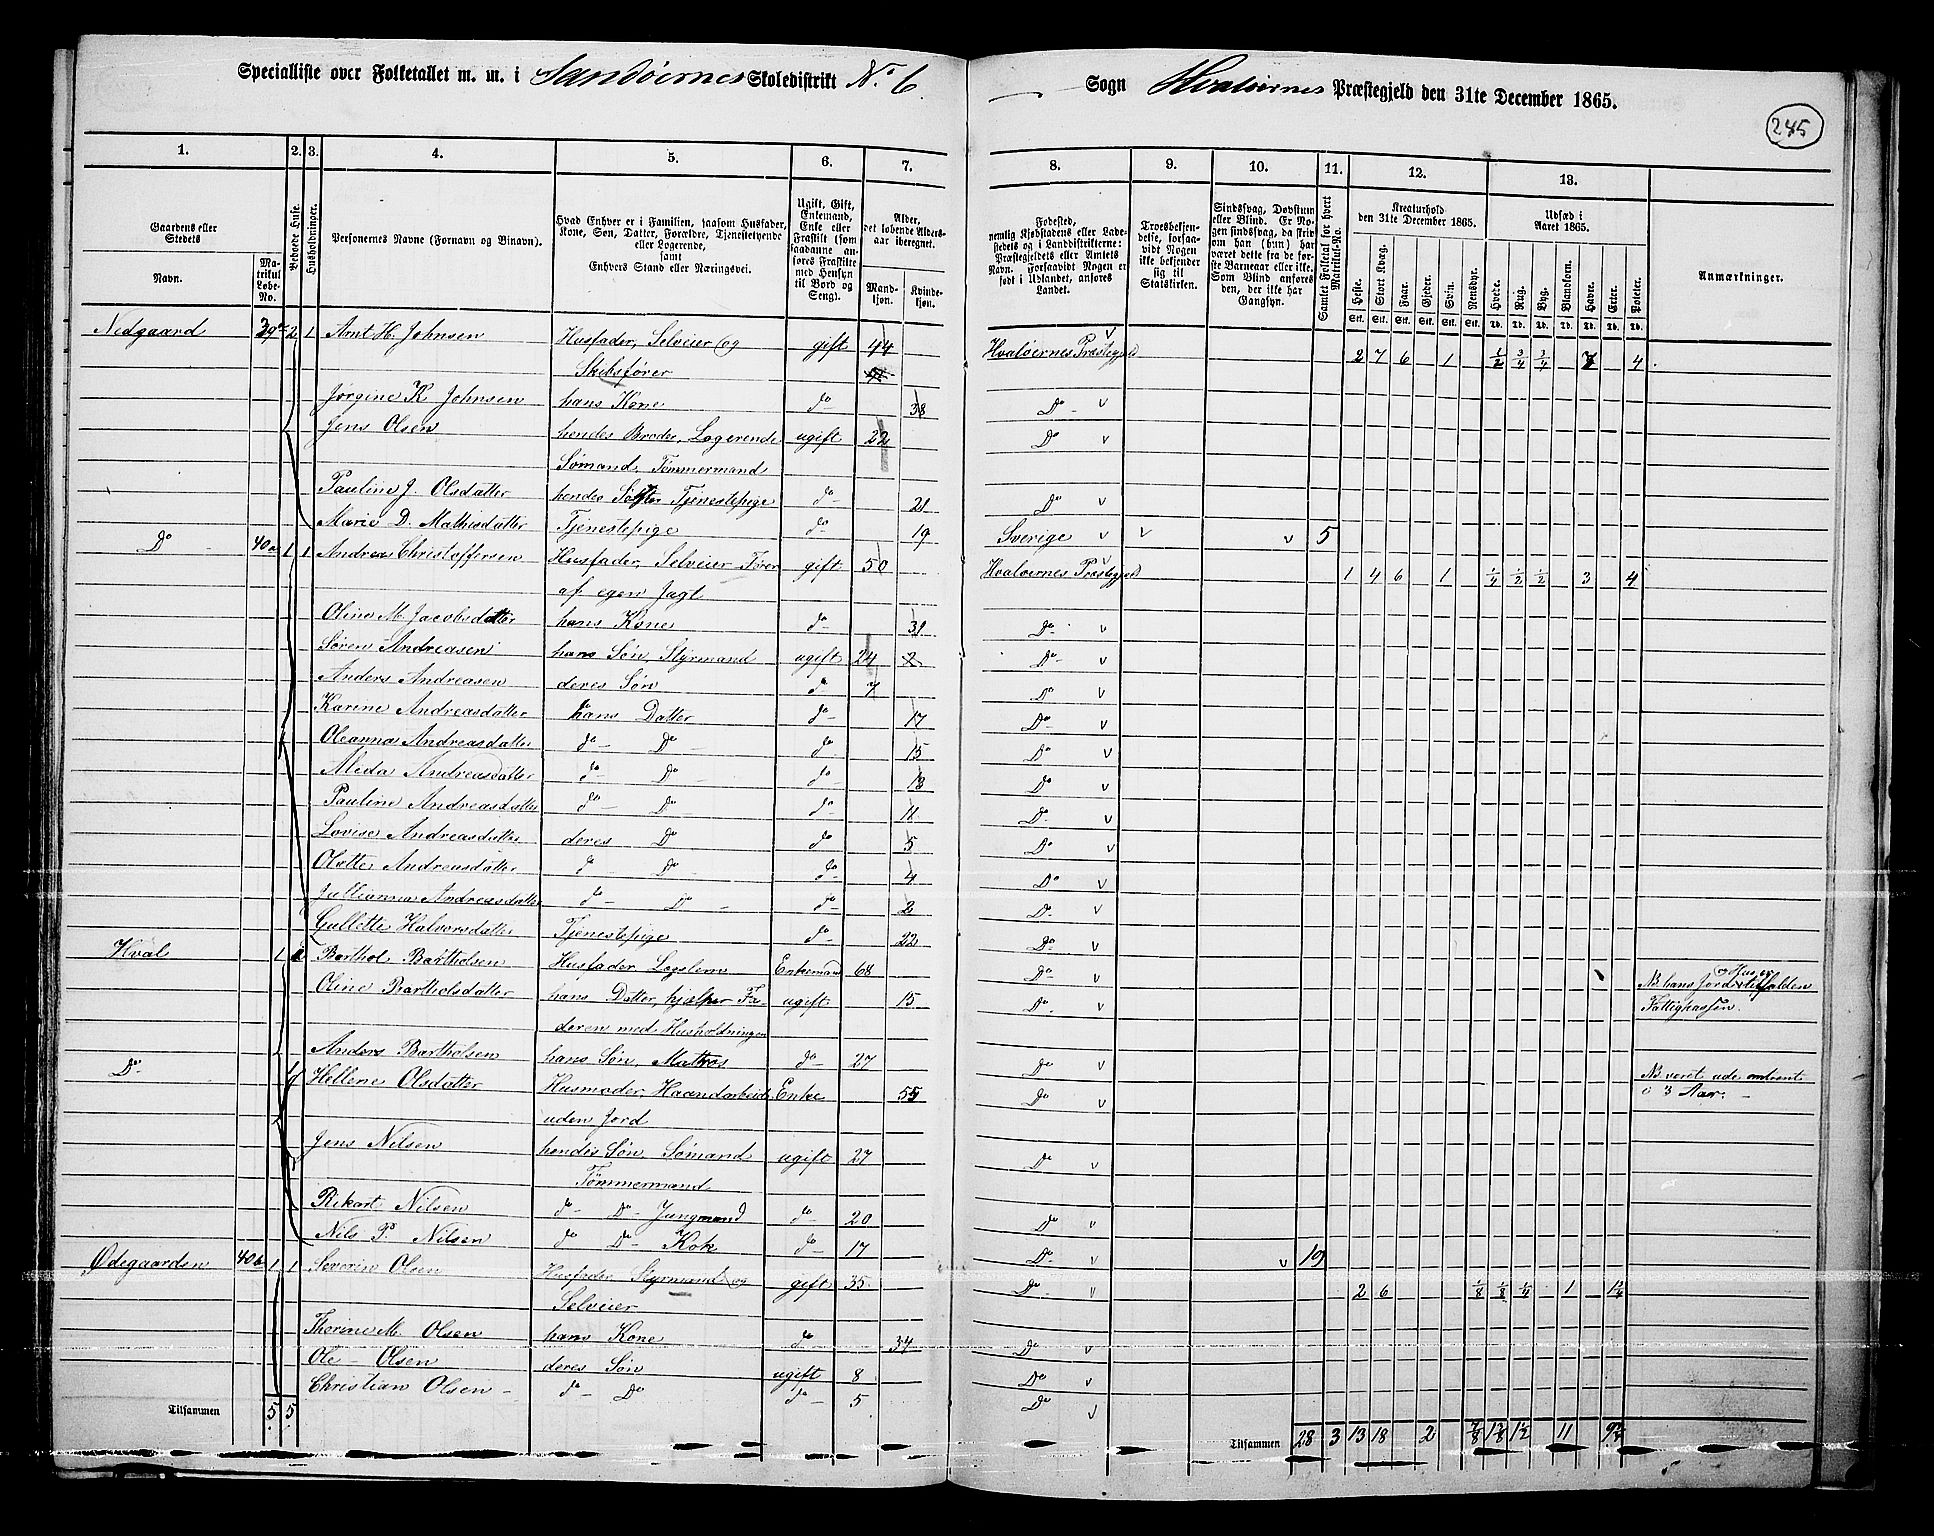 Specialliste over Folketallet m. m. i Sandøernes Skoledistrikt No 6
Sogn Hvaløernes Præstegjeld den 31te December 1865.
245
1. 2. 3. 4. 5. 6. 7. 8. 9. 10. 11. 12. 13.
Gaardens eller Stedets
Navn.
Matrikul Løbe-No.
Beboede Huse.
Husholdninger.
Personernes Navne (Fornavn og Binavn).
Hvad Enhver er i Familien, saasom Husfader, Kone, Søn, Datter, Forældre, Tjenestetyende eller Logerende, samt Enhvers Stand eller Næringsvei.
Ugift, Gift, Enkemand, Enke eller Fraskilt (som saadanne anføres Fraskilte med Hensyn til Bord og Seng).
Alder, det løbende Aldersaar iberegnet.
Mandkjøn. Kvindekjøn.
Fødested, nemlig Kjøbstadens eller Ladestedets og i Landdistrikterne: Præstegjeldets eller Amtets Navn. Forsaavidt Nogen er født i Udlandet, anføres Landet.
Troesbekjendelse, forsaavidt Nogen ikke bekjender sig til Statskirken.
Sindssvag, Døvstum eller Blind. Er Nogen sindssvag, da skriv om han (hun) har været dette fra de første Barneaar eller ikke. Som Blind anføres den, der ikke har Gangsyn.
Samlet Folketal for hvert Matrikul-No.
Kreaturhold den 31te December 1865.
Heste. Stort Kvæg. Faar. Gjeder. Svin. Rensdyr.
Udsæd i Aaret 1865.
Hvede. Rug. Byg. Blandkorn. Havre. Erter. Poteter.
Anmærkninger.
Nedgaard 39a 2 1 Arnt H. Johnsen Husfader, Selveier og gift 44 Hvaløernes Præstegjeld 2 7 6 1 1/2 3/4 3/4 7 4
Skibsfører
Jørgine K Johnsen hans Kone do 38 Do
Jens Olsen hendes Broder, Logerende ugift 22 Do
Sømand, Tømmermand
Pauline J. Olsdatter hendes Søster Tjenestepige do 21 Do
Marie D. Mathisdatter Tjenestepige do 19 Sverige 5
Do 40a 1 1 Andreas Christoffersen Husfader, Selveier Fører gift 50 Hvaløernes Præstegjeld 1 4 6 1 1/4 1/2 1/2 3 4
af egen Jagt
Oline M. Jacobsdatter hans Kone do 31 Do
Søren Andreasen hans Søn, Styrmand ugift 24 Do
Anders Andreasen deres Søn do 7 Do
Karine Andreasdatter hans Datter do 17 Do
Oleanna Andreasdatter do Do do 15 Do
Alida Andreasdatter do Do do 13 Do
Pauline Andreasdatter do Do do 11 Do
Lovise Andreasdatter deres Do do 5 Do
Olette Andreasdatter do Do do 4 Do
Jullianna Andreasdatter do Do do 2 Do
Gullette Halvorsdatter Tjenestepige do 22 Do
Hval 1 Barthol Bartholsen Husfader Enkemand 68 Do
Oline Bartholsdatter hans Datter, hjælper Fa- ugift 15 Do NB. hans Jord Huser
deren med Husholdningen Fattigkassen
Anders Bartholsen hans Søn, Matros do 27 Do NB. været ude omtrent
i 3 Aar.
Do Hellene Olsdatter Husmoder, Haandarbeide Enke 55 Do
uden Jord
Jens Nilsen hendes Søn, Sømand ugift 27 Do
Tømmermand
Rikart Nilsen do Do Jungmand do 20 Do
Nils P. Nilsen do Do Kok do 17 Do 19
Ødegaarden 40b 1 1 Severin Olsen Husfader Styrmand og gift 35 Do 2 6 1/8 1/8 1/4 1 1 1/4
Selveier
Thorine M. Olsen hans Kone do 34 Do
Ole Olsen deres Søn ugift 8 Do
Christian Olsen do Do do 5 Do
Tilsammen 5 5 Tilsammen 28 3 13 18 2 7/8 1 3/8 1 1/2 11